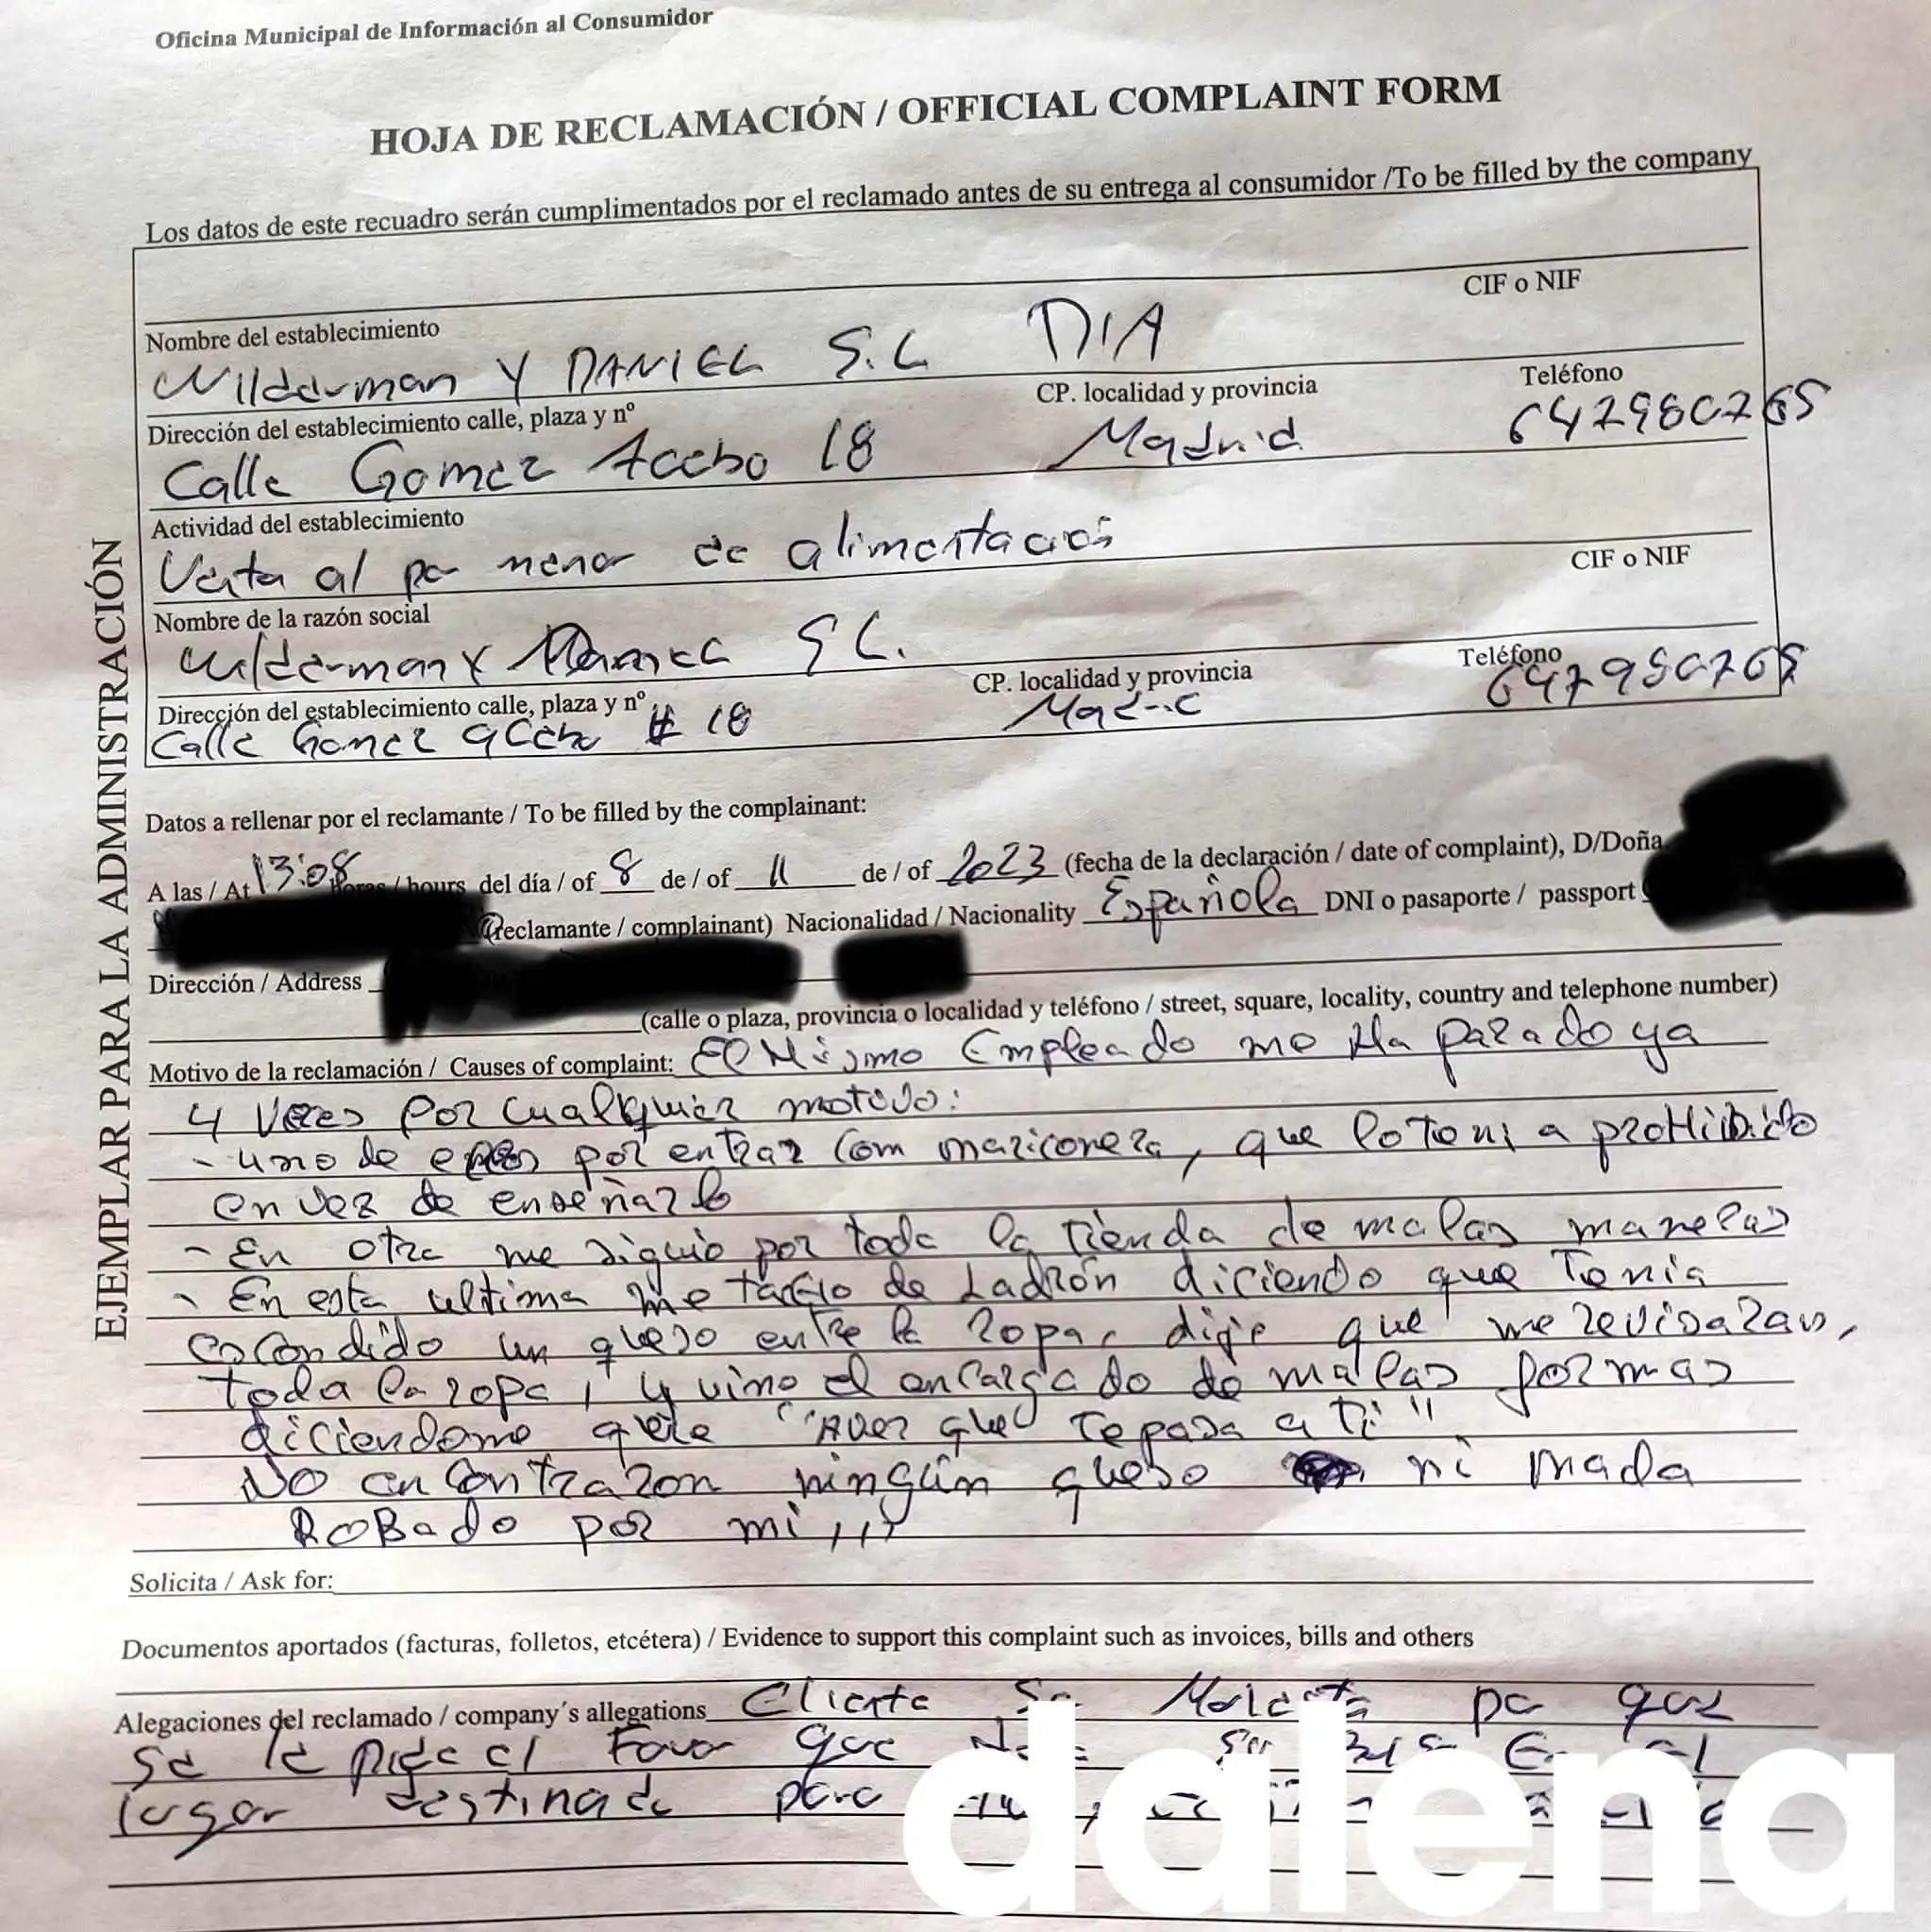 Oficina Municipal de Información al Consumidor
HOJA DE RECLAMACIÓN / OFFICIAL COMPLAINT FORM
Los datos de este recuadro serán cumplimentados por el reclamado antes de su entrega al consumidor /To be filled by the company
Nombre del establecimiento CIF o NIF
Wilderman Y DANIEL S.L DIA
Dirección del establecimiento calle, plaza y nº CP. localidad y provincia Teléfono
Calle Gomez Acebo 18 Madrid
Actividad del establecimiento
Venta al por menor de alimentación
Nombre de la razón social CIF o NIF
Wilderman Y Daniel SL.
Dirección del establecimiento calle, plaza y nº CP. localidad y provincia Teléfono
Calle Gomez acebo # 18 Madrid
EJEMPLAR PARA LA ADMINISTRACIÓN
Datos a rellenar por el reclamante / To be filled by the complainant:
A las / At 13:08 horas / hours del día / of 8 de / of 11 de / of 2023 (fecha de la declaración / date of complaint), D/Doña
(reclamante / complainant) Nacionalidad / Nacionality Española DNI o pasaporte / passport
Dirección / Address
(calle o plaza, provincia o localidad y teléfono / street, square, locality, country and telephone number)
Motivo de la reclamación / Causes of complaint: El Mismo Empleado me Ha parado ya
4 veces por cualquier motivo:
- uno de ellos por entrar com mariconera, que lo tenia proHibido
en vez de enseñarlo
- En otra me siguio por toda la tienda de malas maneras
- En esta ultima me tacho de Ladrón diciendo que Tenia
escondido un queso entre la ropa, dije que me revisaran,
toda la ropa, y vino el encargado de malas formas
diciendome que "Aver que te pasa a ti"
No encontraron ningún queso ni nada
RoBado por mi,,,
Solicita / Ask for:
Documentos aportados (facturas, folletos, etcétera) / Evidence to support this complaint such as invoices, bills and others
Alegaciones del reclamado / company´s allegations Cliente se Molesta por que
se le pide el Favor que
lugar destinado para
dalena